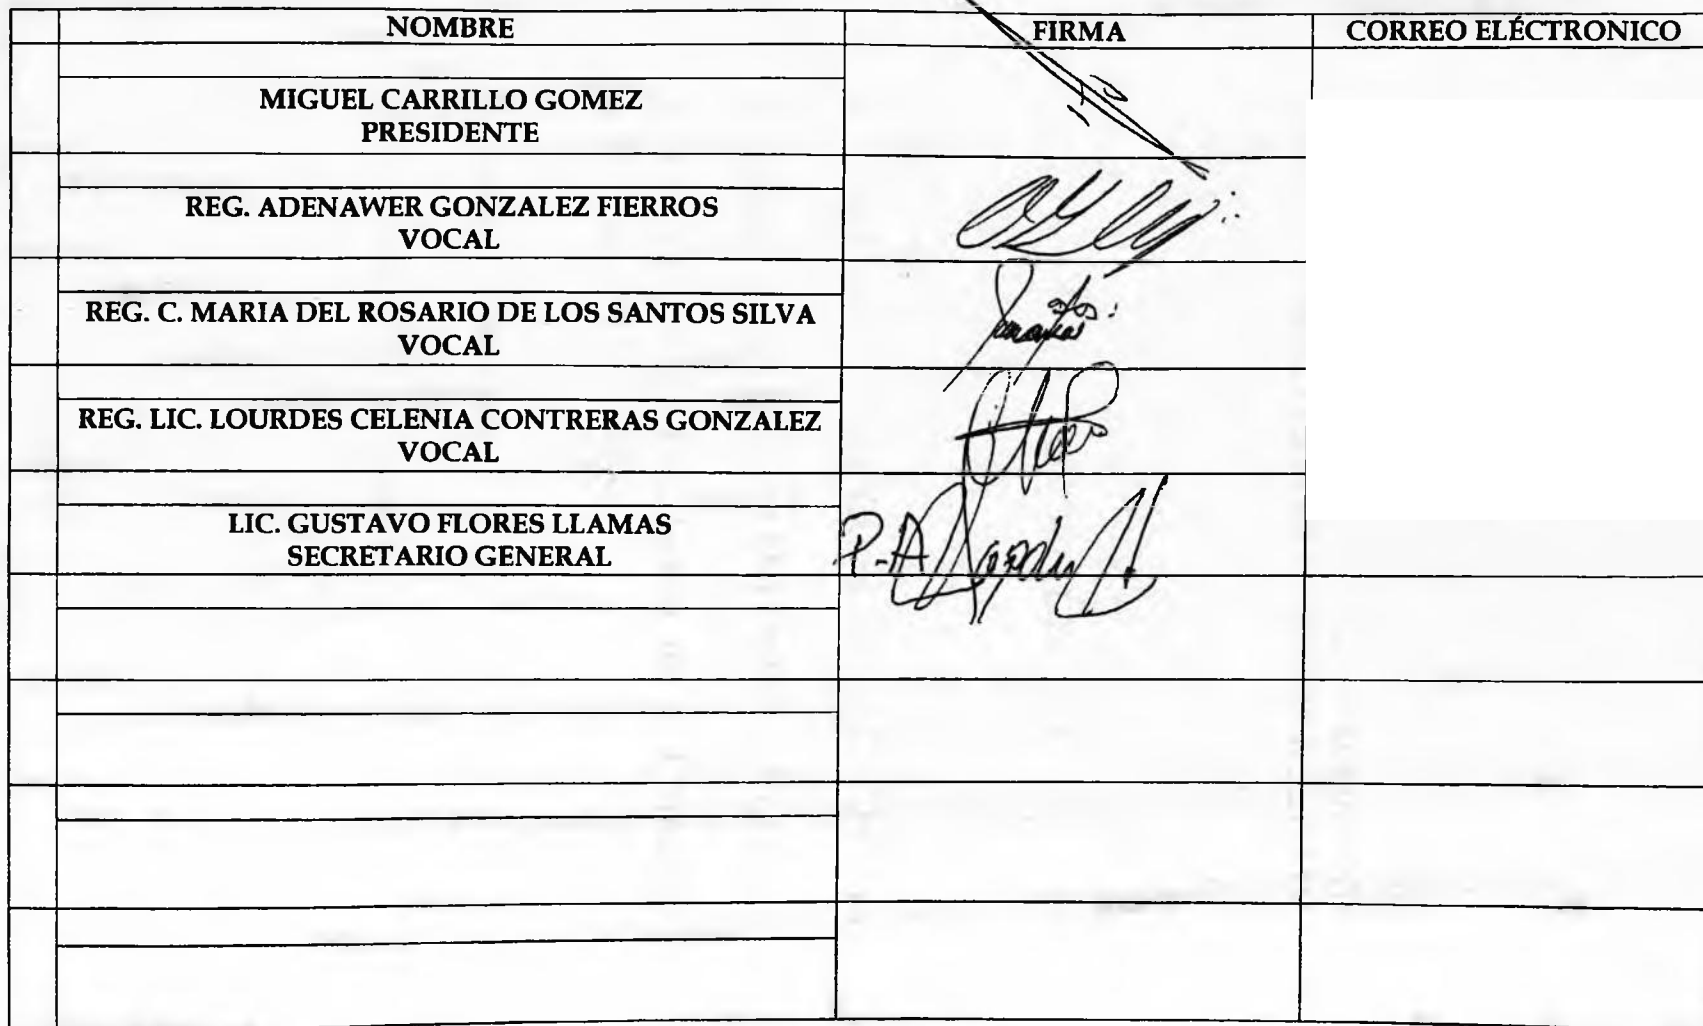 NOMBRE FIRMA CORREO ELÉCTRONICO
MIGUEL CARRILLO GOMEZ
PRESIDENTE
REG. ADENAWER GONZALEZ FIERROS
VOCAL
REG. C. MARIA DEL ROSARIO DE LOS SANTOS SILVA
VOCAL
REG. LIC. LOURDES CELENIA CONTRERAS GONZALEZ
VOCAL
LIC. GUSTAVO FLORES LLAMAS
SECRETARIO GENERAL
P-A